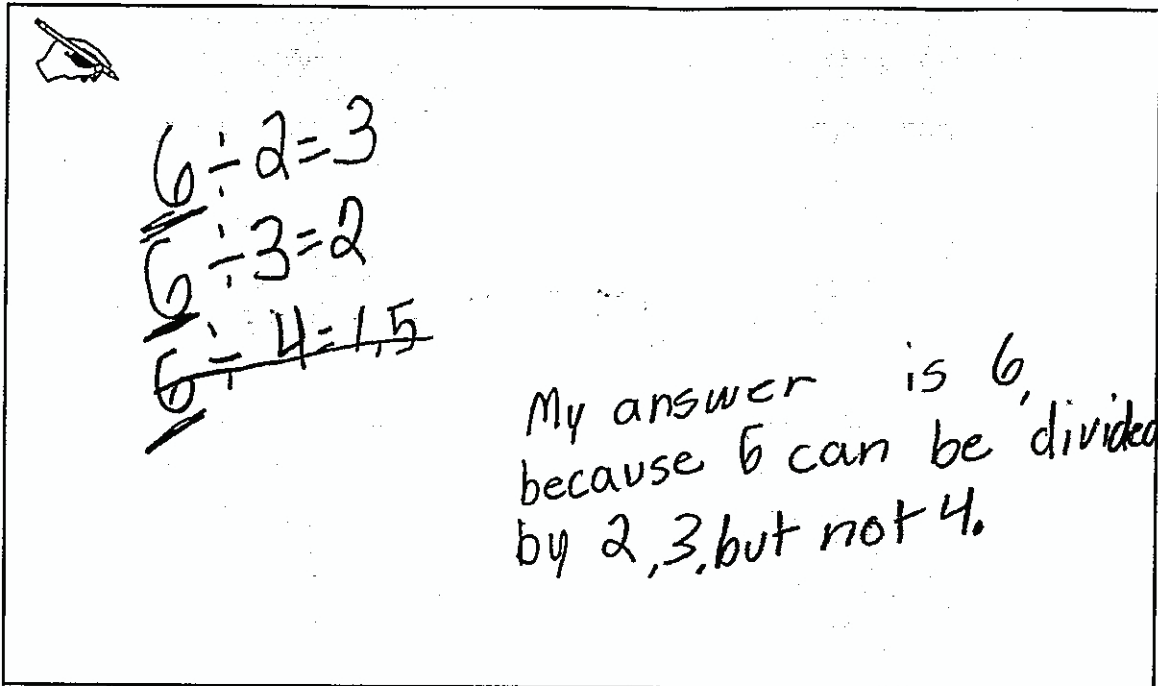 6÷2=3
6÷3=2
6÷4=1.5
My answer is 6,
because 6 can be divided
by 2,3,but not 4.